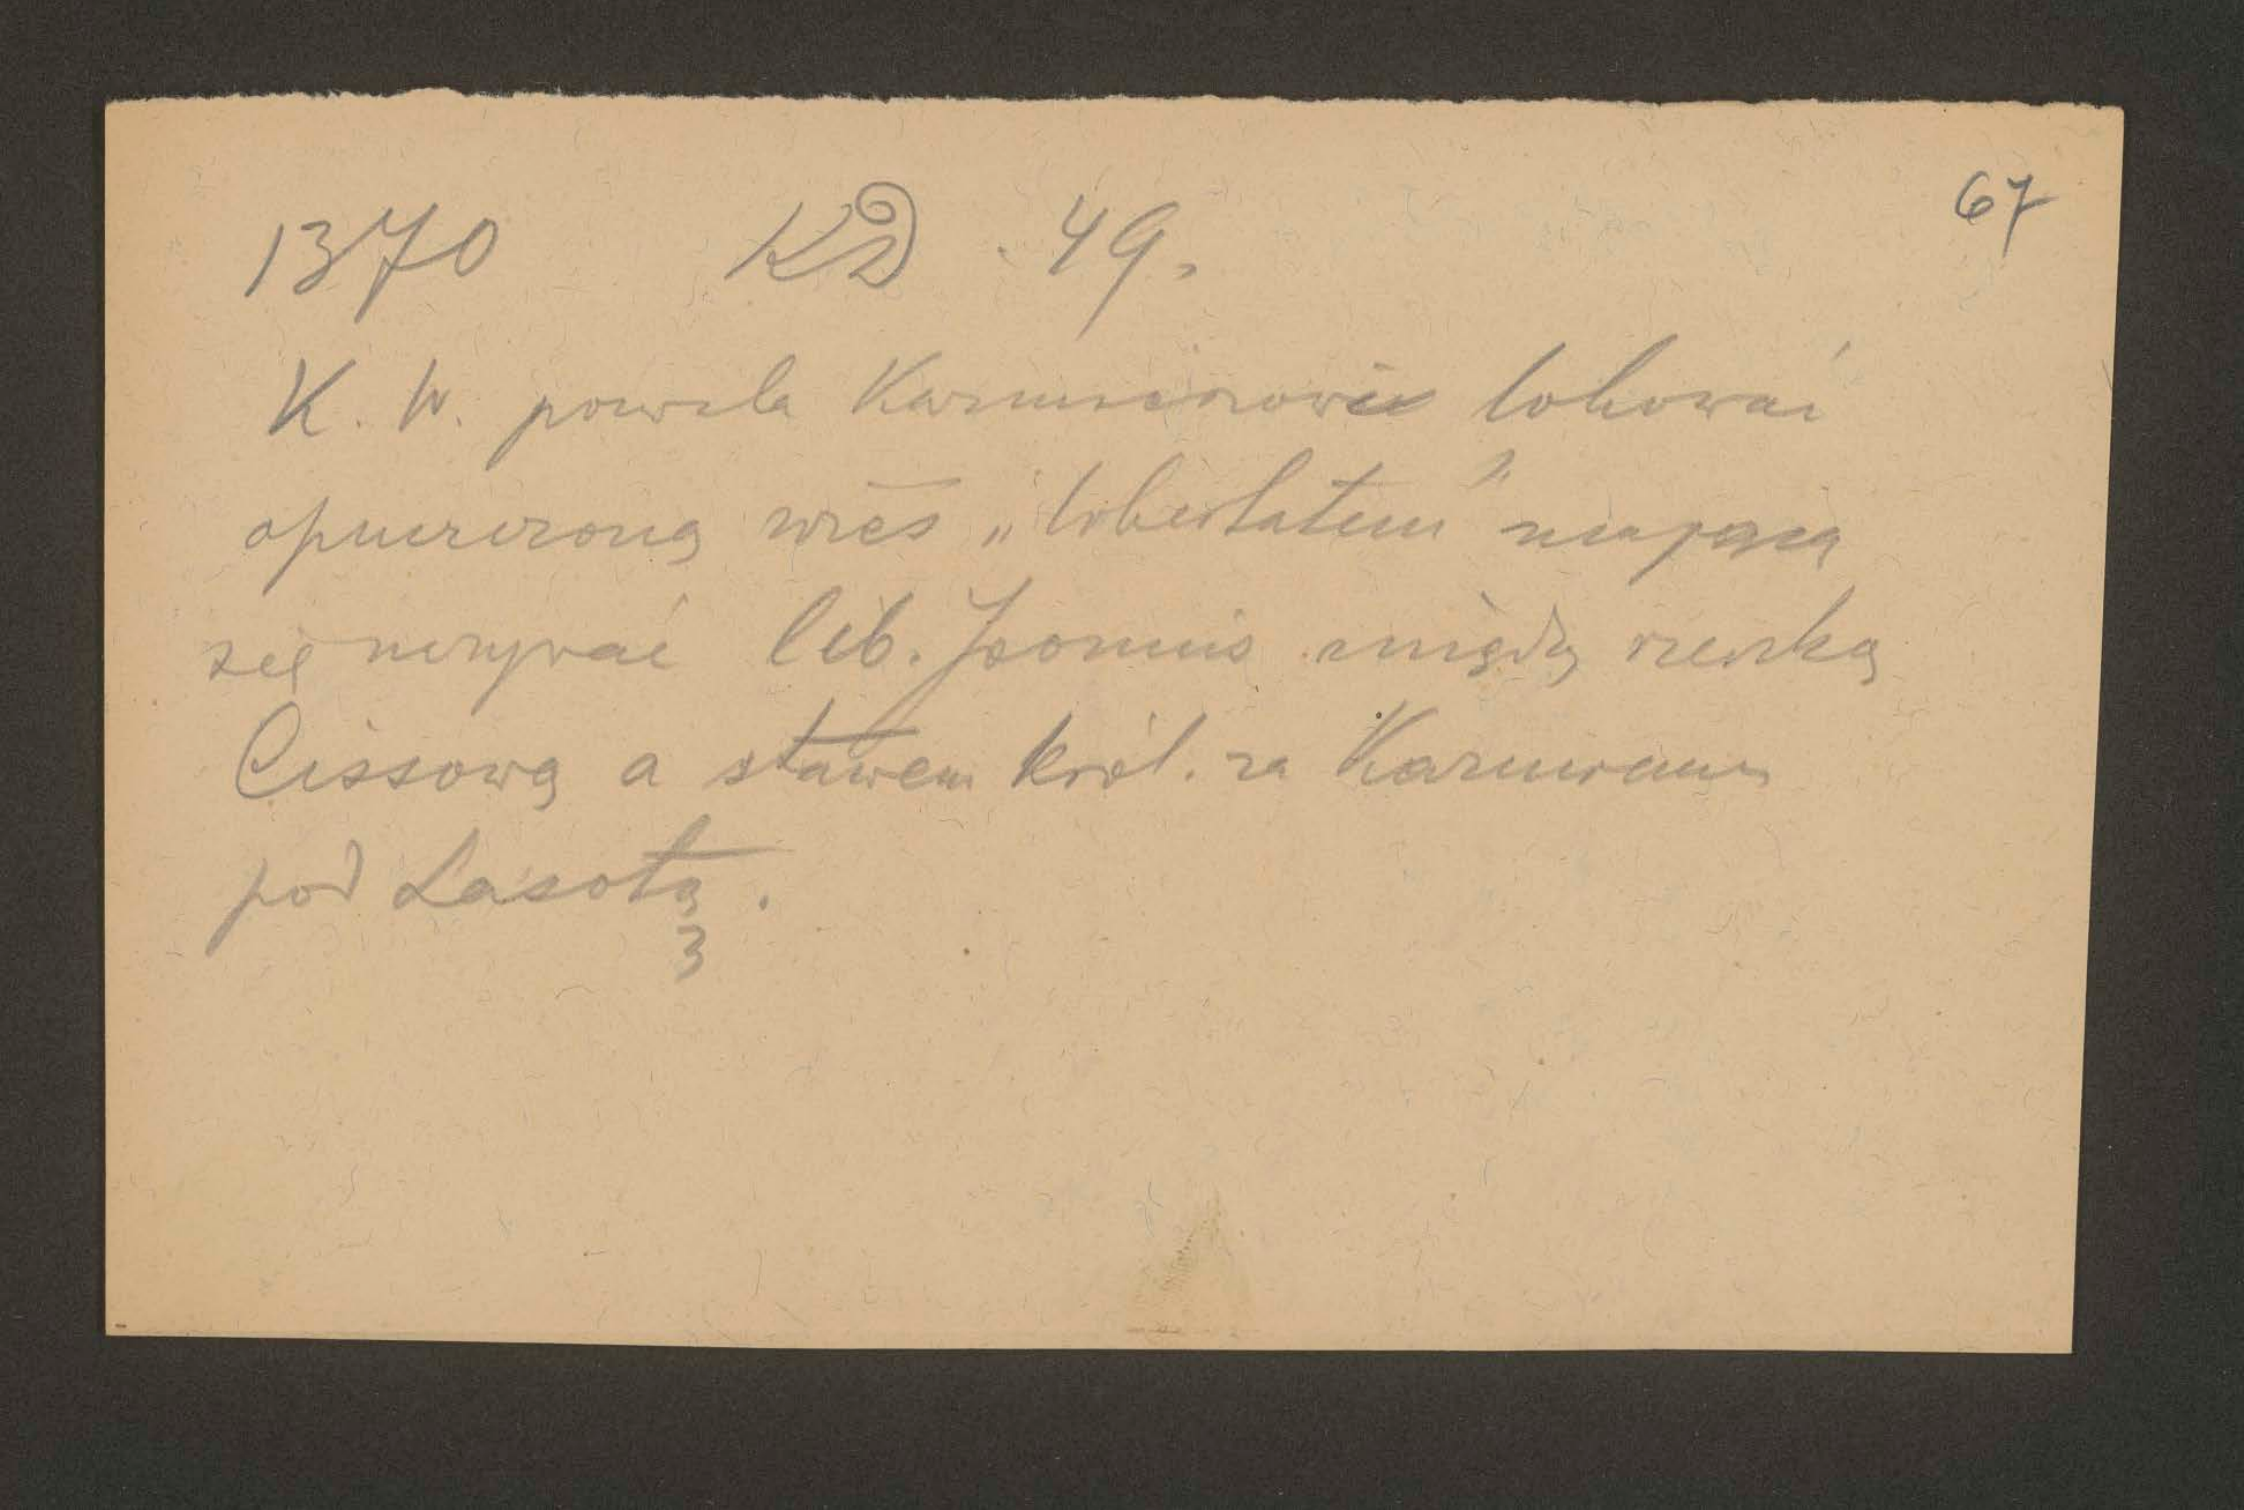 67
1370 KD 49.
K. W. pozwala Kazimierzowi lokować
opuszczoną wieś „libertatem" mającą
się nazywać lib. Joannis między rzeczką
Cissową a stawem król. za Kazimierzem
pod Lasotą.
3